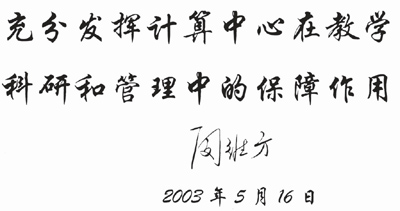 充分发挥计算中心在教学
科研和管理中的保障作用
2003年5月16日